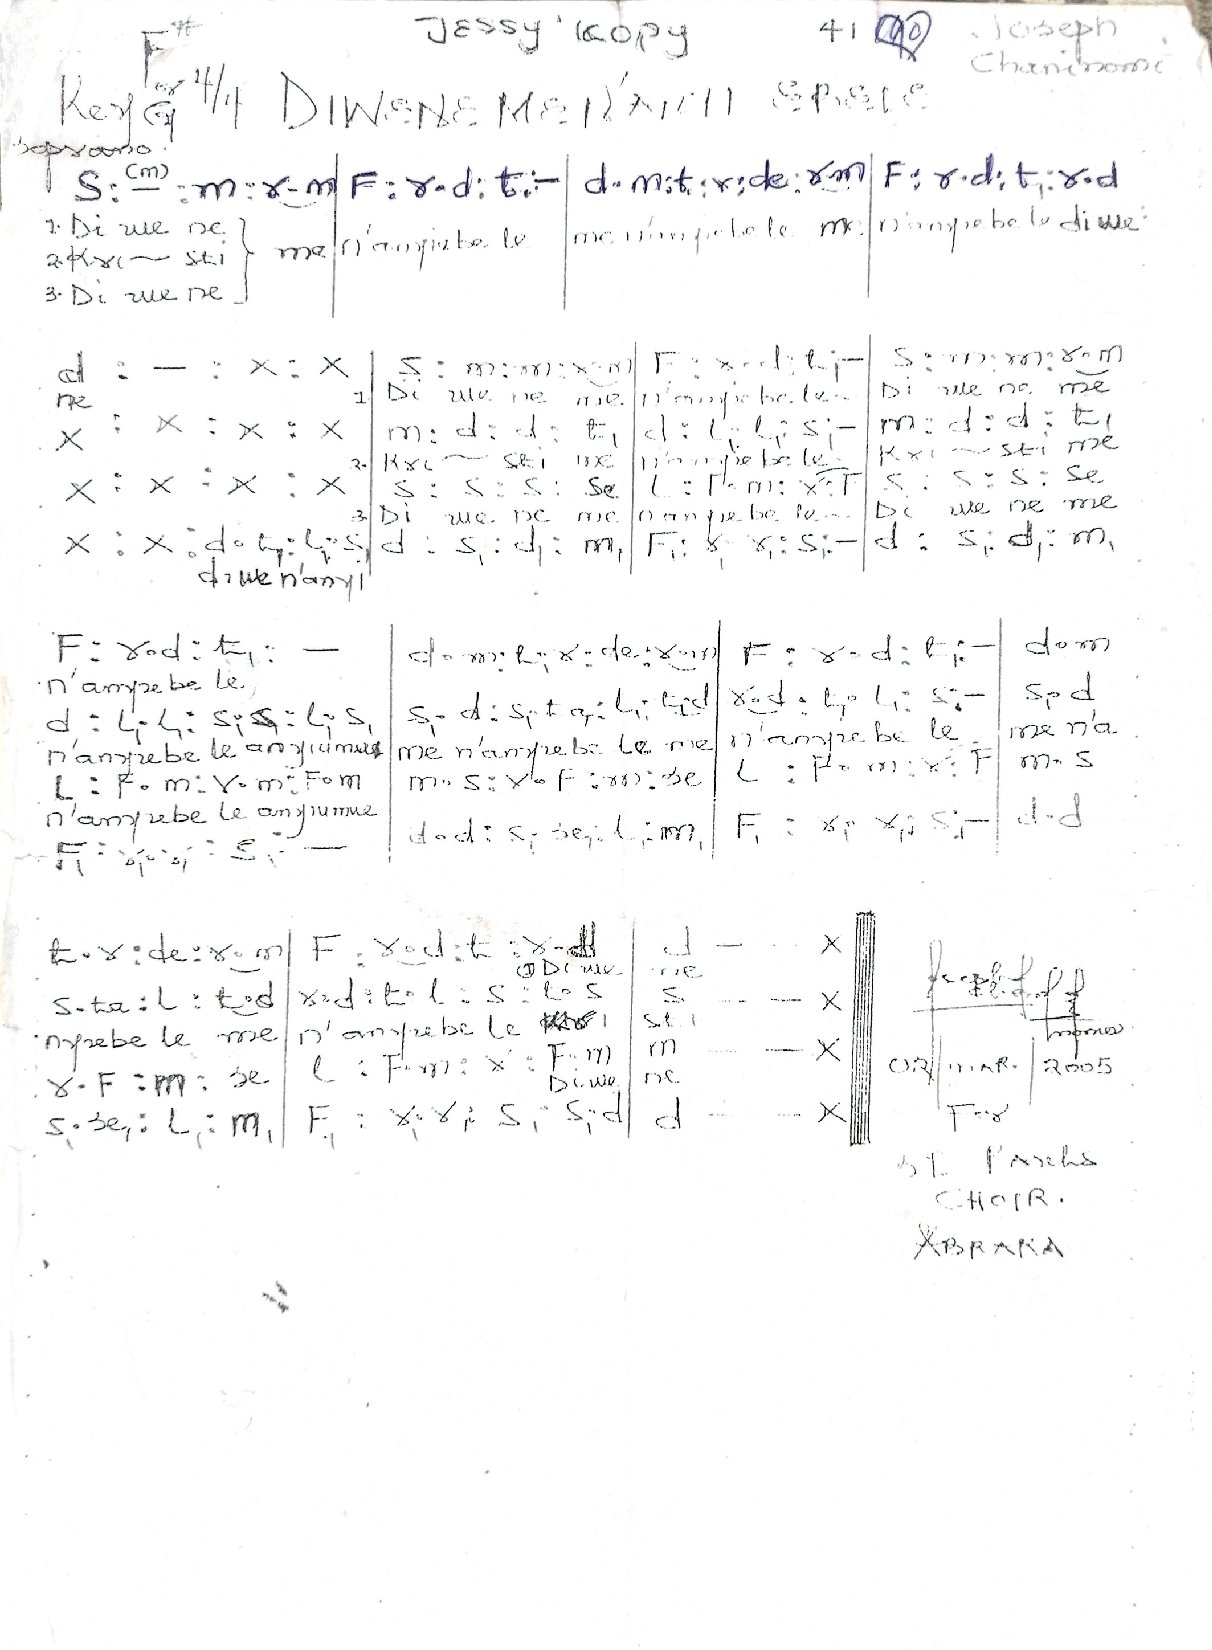 JESSY' KOPY 41 40 Joseph
F# Chaninomi
Key or G 4/4 DIWENE ME N'ANYI EBELE
Soprano.
S : (m) — : m : r-m | F : r.d : t₁ : — | d.m : t₁.r : de : r.m | F : r.d : t₁ : r.d
1. Di we ne
2. Kri ~ sti } me | n'anyiebe le | me n'anyebe le me | n'anyebe le diwe
3. Di we ne
d : — : x : x | S : m : m : r.m | F : r.d : t₁ : — | S : m : m : r.m
ne 1. Di we ne me | n'anyiebe le - | Di we ne me
x : x : x : x | m : d : d : t₁ | d : l₁.l₁ : s₁ : — | m : d : d : t₁
2. Kri ~ sti me | n'anyiebe le - | Kri ~ sti me
x : x : x : x | s : s : s : se | L : F.m : r : F | s : s : s : se
3. Di we ne me | n'anyebe le - | Di we ne me
x : x : d.t₁ : l₁.s₁ | d : s₁ : d₁ : m₁ | F₁ : r₁.r₁ : s₁ : — | d : s₁ : d₁ : m₁
diwe n'anyi
F : r.d : t₁ : — | d.m : t₁.r : de : r.m | F : r.d : t₁ : — | d.m
n'anyebe le
d : l₁.l₁ : s₁.s₁ : l₁.s₁ | s₁.d : s₁.ta₁ : l₁ : t₁.d | r.d : t₁.l₁ : s₁ : — | s₁.d
n'anyebe le anyiumue | me n'anyebe le me | n'anyebe le | me n'a
L : F.m : r.m : F.m | m.s : r.F : m : se | L : F.m : r : F | m.s
n'anyebe le anyiumue
F₁ : r₁.r₁ : s₁ : — | d.d : s₁.se₁ : l₁ : m₁ | F₁ : r₁.r₁ : s₁ : — | d.d
t.r : de : r.m | F : r.d : t : r.d | d — - x
① Diwe ne
s.ta : L : t.d | r.d : t.l : s : l.s | s - — x
nyebe le me | n'anyebe le Kri sti
r.F : m : se | L : F.m : r : F.m | m - — x
Diwe ne
s₁.se₁ : L₁ : m₁ | F₁ : r₁.r₁ : s₁ : s₁.d | d - - x
02 | MAR. | 2005
For
ST. Paul's
CHOIR.
ABRAKA